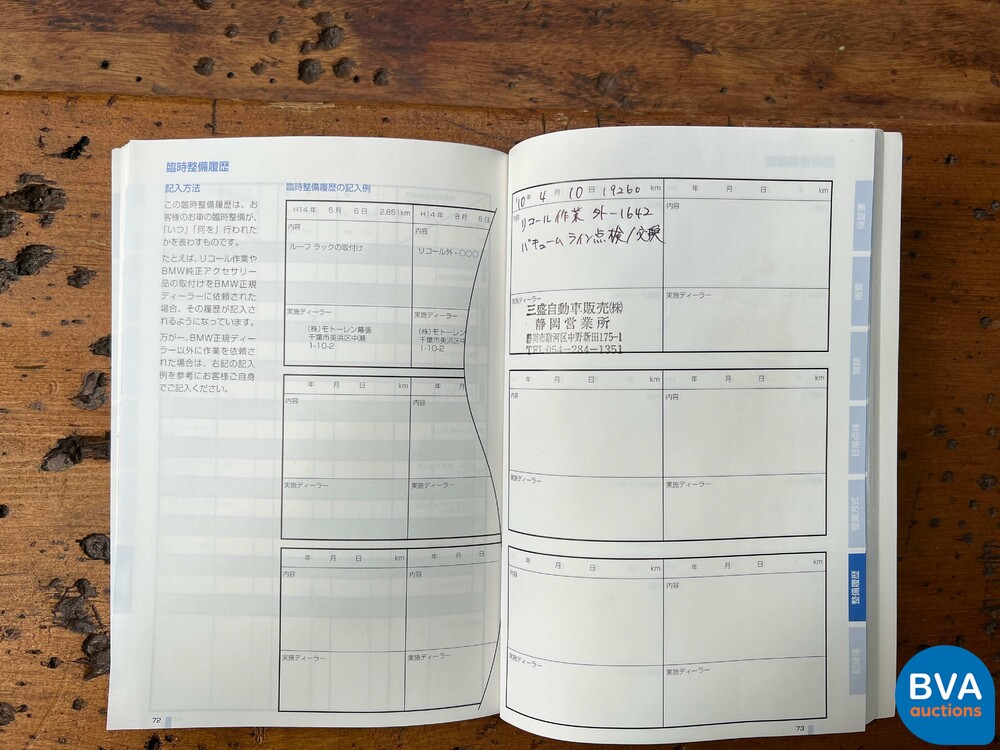 臨時整備履歴
記入方法
この臨時整備履歴は、お
客様のお車の臨時整備が、
「いつ」「何を」行われた
かを表わすものです。
たとえば、リコール作業や
BMW純正アクセサリー
品の取付けをBMW正規
ディーラーに依頼された
場合、その履歴が記入さ
れるようになっています。
万が一、BMW正規ディー
ラー以外に作業を依頼さ
れた場合は、右記の記入
例を参考にお客様ご自身
でご記入ください。
臨時整備履歴の記入例
H14年 5月 6日 2,851km
内容
ルーフ ラックの取付け
実施ディーラー
(株)モトーレン幕張
千葉市美浜区中瀬
1-10-2
H14年 8月 6日
内容
リコール外・○○○
実施ディーラー
(株)モトーレン
千葉市美浜区中
1-10-2
年 月 日 km
内容
実施ディーラー
年 月 日 km
内容
実施ディーラー
年 月 日 km
内容
実施ディーラー
年 月 日 km
内容
実施ディーラー
72
'10年 4月 10日 19260 km
内容
リコール作業 外-1642
バキュームライン点検/交換
実施ディーラー
三盛自動車販売(株)
静岡営業所
静岡市駿河区中野新田175-1
TEL 054-284-1351
年 月 日 km
内容
実施ディーラー
年 月 日 km
内容
実施ディーラー
年 月 日 km
内容
実施ディーラー
年 月 日 km
内容
実施ディーラー
年 月 日 km
内容
実施ディーラー
73
保証書
概要
種類
日常点検
整備方式
整備履歴
記録簿
BVA
auctions